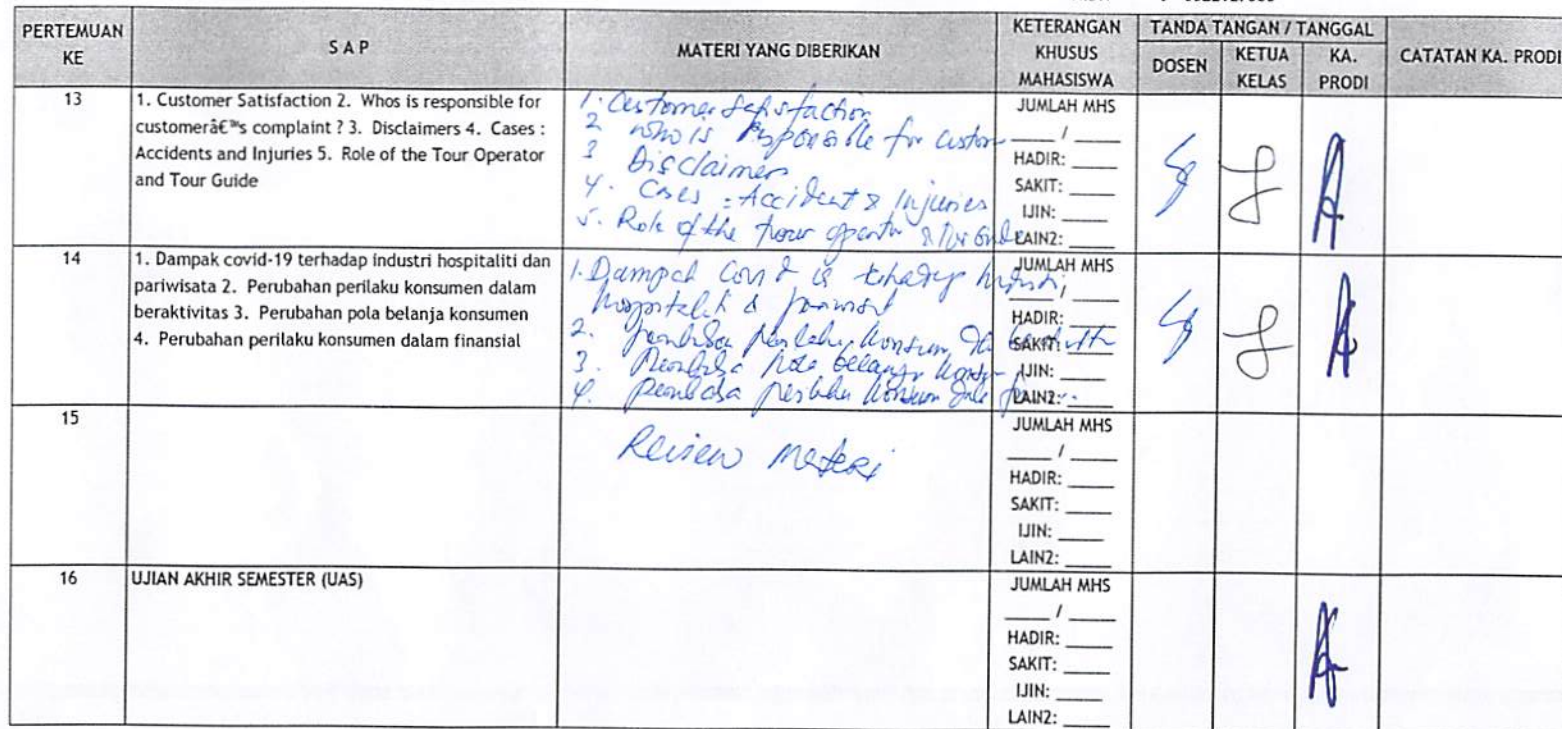 PERTEMUAN KE
S A P
MATERI YANG DIBERIKAN
KETERANGAN KHUSUS MAHASISWA
TANDA TANGAN / TANGGAL
DOSEN
KETUA KELAS
KA. PRODI
CATATAN KA. PRODI
13
1. Customer Satisfaction 2. Whos is responsible for
customerâ€™s complaint ? 3. Disclaimers 4. Cases :
Accidents and Injuries 5. Role of the Tour Operator
and Tour Guide
1. Customer Satisfaction
2 who is responsible for custom
3 Disclaimer
4. Cases : Accident & Injuries
5. Role of the tour
JUMLAH MHS
____ / ____
HADIR: ____
SAKIT: ____
IJIN: ____
LAIN2: ____
14
1. Dampak covid-19 terhadap industri hospitaliti dan
pariwisata 2. Perubahan perilaku konsumen dalam
beraktivitas 3. Perubahan pola belanja konsumen
4. Perubahan perilaku konsumen dalam finansial
1. Dampak Covid
2.
3.
4.
JUMLAH MHS
____ / ____
HADIR: ____
SAKIT: ____
IJIN: ____
LAIN2: ____
15
Review materi
JUMLAH MHS
____ / ____
HADIR: ____
SAKIT: ____
IJIN: ____
LAIN2: ____
16
UJIAN AKHIR SEMESTER (UAS)
JUMLAH MHS
____ / ____
HADIR: ____
SAKIT: ____
IJIN: ____
LAIN2: ____